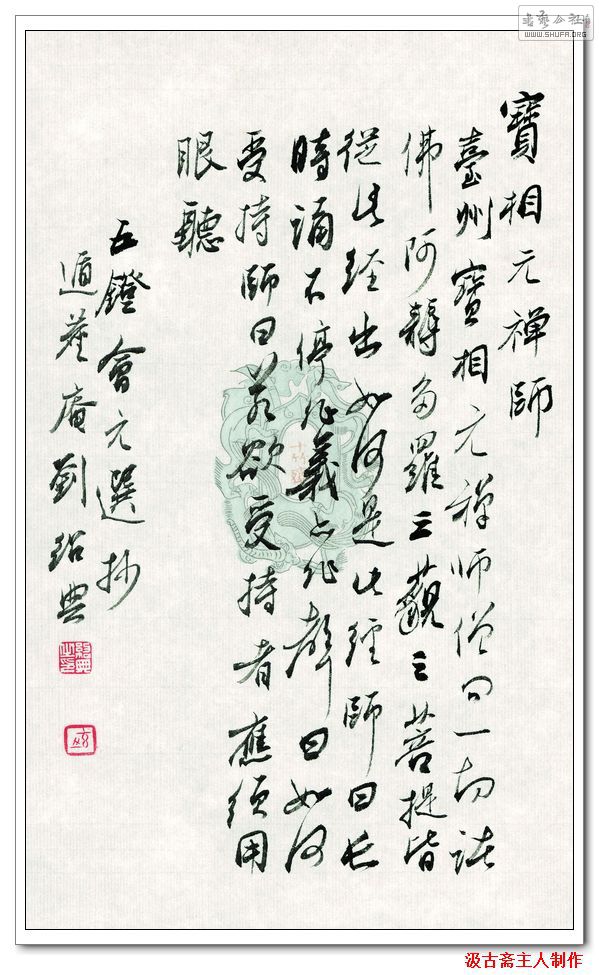 书艺公社
WWW.SHUFA.ORG
寶相元禪師
臺州寶相元禪师僧问一切諸
佛阿耨多羅三藐三菩提皆
從此經出如何是此經師曰长
時誦不停非義亦非聲曰如何
受持師曰若欲受持者應須用
眼聽
五鐙會元選抄
遁庵劉紹典
汲古斋主人制作